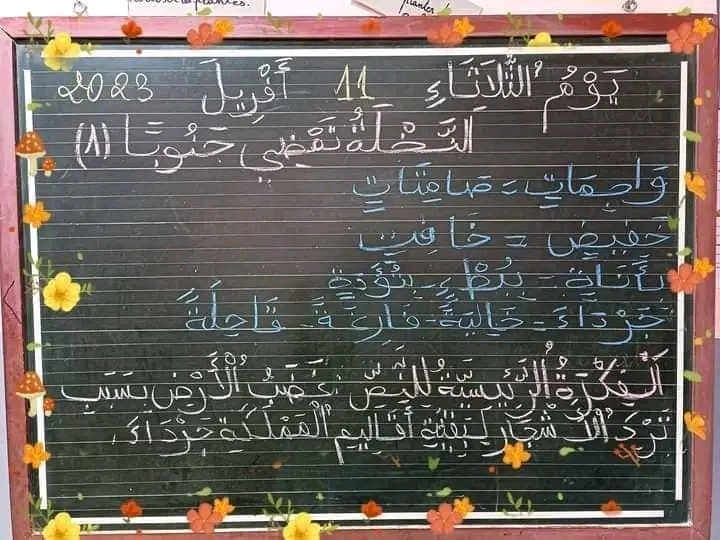 يَوْمُ الثُّلَاثَاءِ 11 أَفْرِيلَ 2023
النَّخْلَةُ تَمْضِي جَنُوبًا (1)
وَاجِمَاتٍ = صَامِتَاتٍ
خَفِيضٍ = خَافِتٍ
بِأَنَاةٍ = بِبُطْءٍ - بِتُؤَدَةٍ
جَرْدَاءَ = خَالِيَةً - فَارِغَةً - قَاحِلَةً
اَلْفِكْرَةُ الرَّئِيسِيَّةُ لِلنَّصِّ : غَضَبُ الْأَرْضِ بِسَبَبِ
تَرْكِ الْأَشْجَارِ لِبَقِيَّةِ أَقَالِيمِ الْمَمْلَكَةِ جَرْدَاءَ.